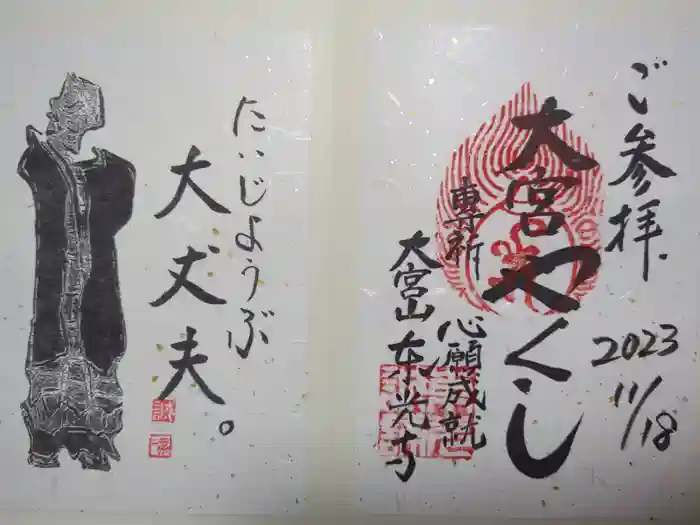 ご参拝
2023
11/18
大宮やくし
専祈
心願成就
大宮山東光寺
たいじょうぶ
大丈夫。